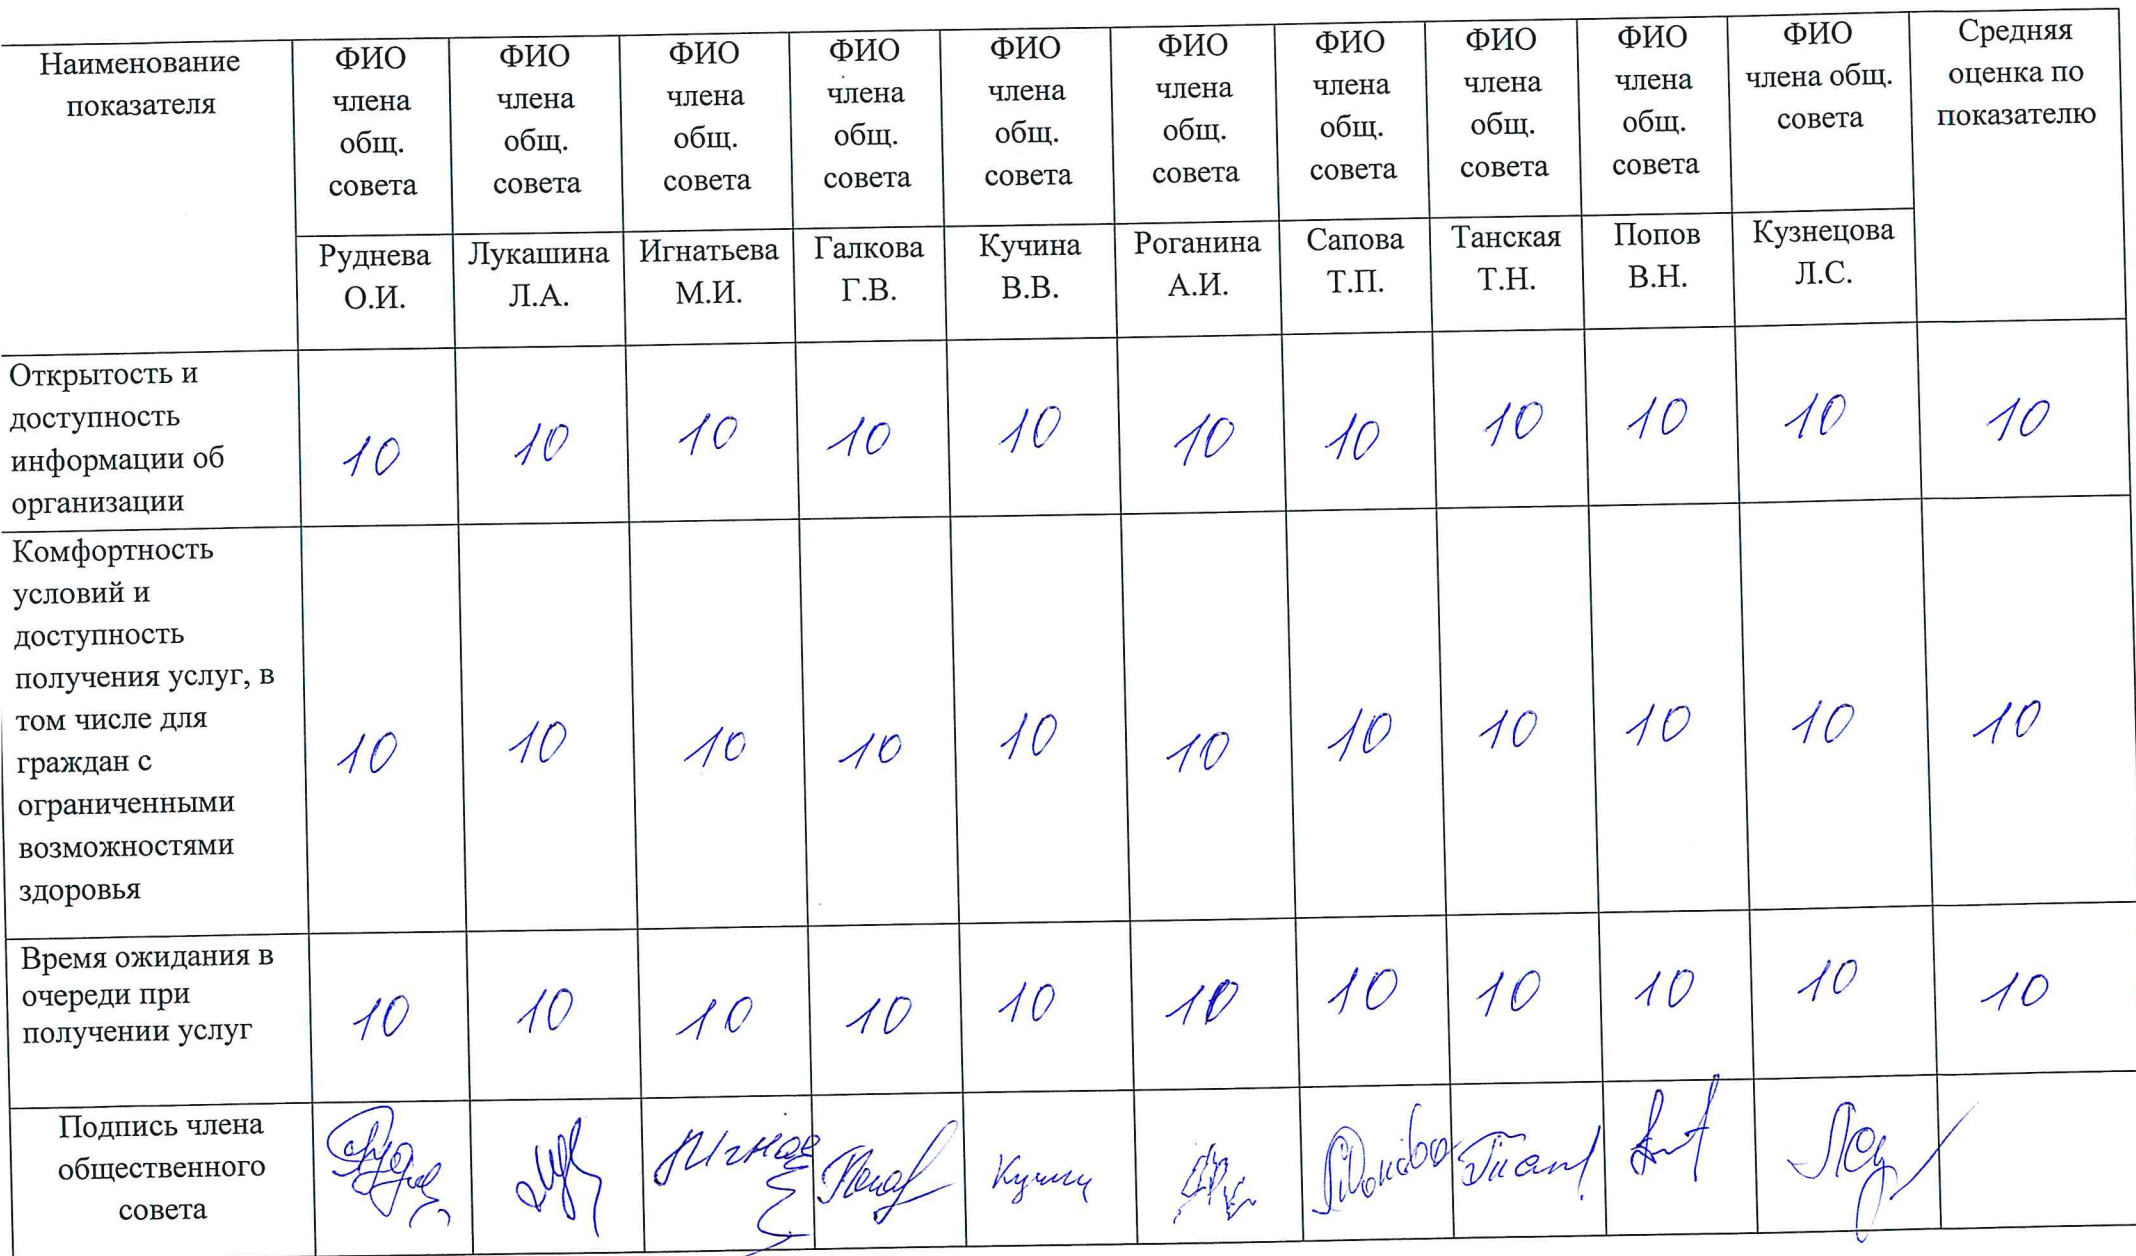 Наименование показателя
ФИО члена общ. совета
ФИО члена общ. совета
ФИО члена общ. совета
ФИО члена общ. совета
ФИО члена общ. совета
ФИО члена общ. совета
ФИО члена общ. совета
ФИО члена общ. совета
ФИО члена общ. совета
ФИО члена общ. совета
Средняя оценка по показателю
Руднева О.И.
Лукашина Л.А.
Игнатьева М.И.
Галкова Г.В.
Кучина В.В.
Роганина А.И.
Сапова Т.П.
Танская Т.Н.
Попов В.Н.
Кузнецова Л.С.
Открытость и
доступность
информации об
организации
10 10 10 10 10 10 10 10 10 10 10
Комфортность
условий и
доступность
получения услуг, в
том числе для
граждан с
ограниченными
возможностями
здоровья
10 10 10 10 10 10 10 10 10 10 10
Время ожидания в
очереди при
получении услуг
10 10 10 10 10 10 10 10 10 10 10
Подпись члена
общественного
совета